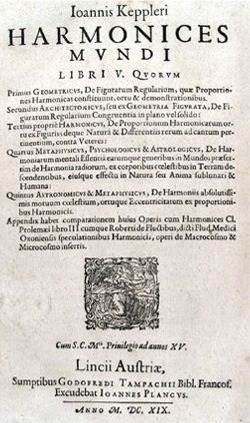 Ioannis Keppleri
HARMONICES
MVNDI
LIBRI V. QVORVM
Primus GEOMETRICVS, De Figurarum Regularium, quæ Proportiones
Harmonicas constituunt, ortu & demonstrationibus.
Secundus ARCHITECTONICVS, seu ex GEOMETRIA FIGVRATA, De Figurarum
Regularium Congruentia in plano vel solido:
Tertius propriè HARMONICVS, De Proportionum Harmonicarum ortu
ex Figuris; deque Naturâ & Differentiis rerum ad cantum pertinentium,
contra Veteres:
Quartus METAPHYSICVS, PSYCHOLOGICVS & ASTROLOGICVS, De Harmoniarum
mentali Essentiâ earumque generibus in Mundo; præsertim
de Harmonia radiorum, ex corporibus cœlestibus in Terram descendentibus,
eiusque effectu in Natura seu Anima sublunari &
Humana:
Quintus ASTRONOMICVS & METAPHYSICVS, De Harmoniis absolutissimis
motuum cœlestium, ortuque Eccentricitatum ex proportionibus
Harmonicis.
Appendix habet comparationem huius Operis cum Harmonices Cl.
Ptolemæi libro III cumque Roberti de Fluctibus, dicti Flud. Medici
Oxoniensis speculationibus Harmonicis, operi de Macrocosmo &
Microcosmo insertis.
Cum S.C. Mtis. Privilegio ad annos XV.
Lincii Austriæ,
Sumptibus GODOFREDI TAMPACHII Bibl. Francof.
Excudebat IOANNES PLANCVS.
ANNO M. DC. XIX.